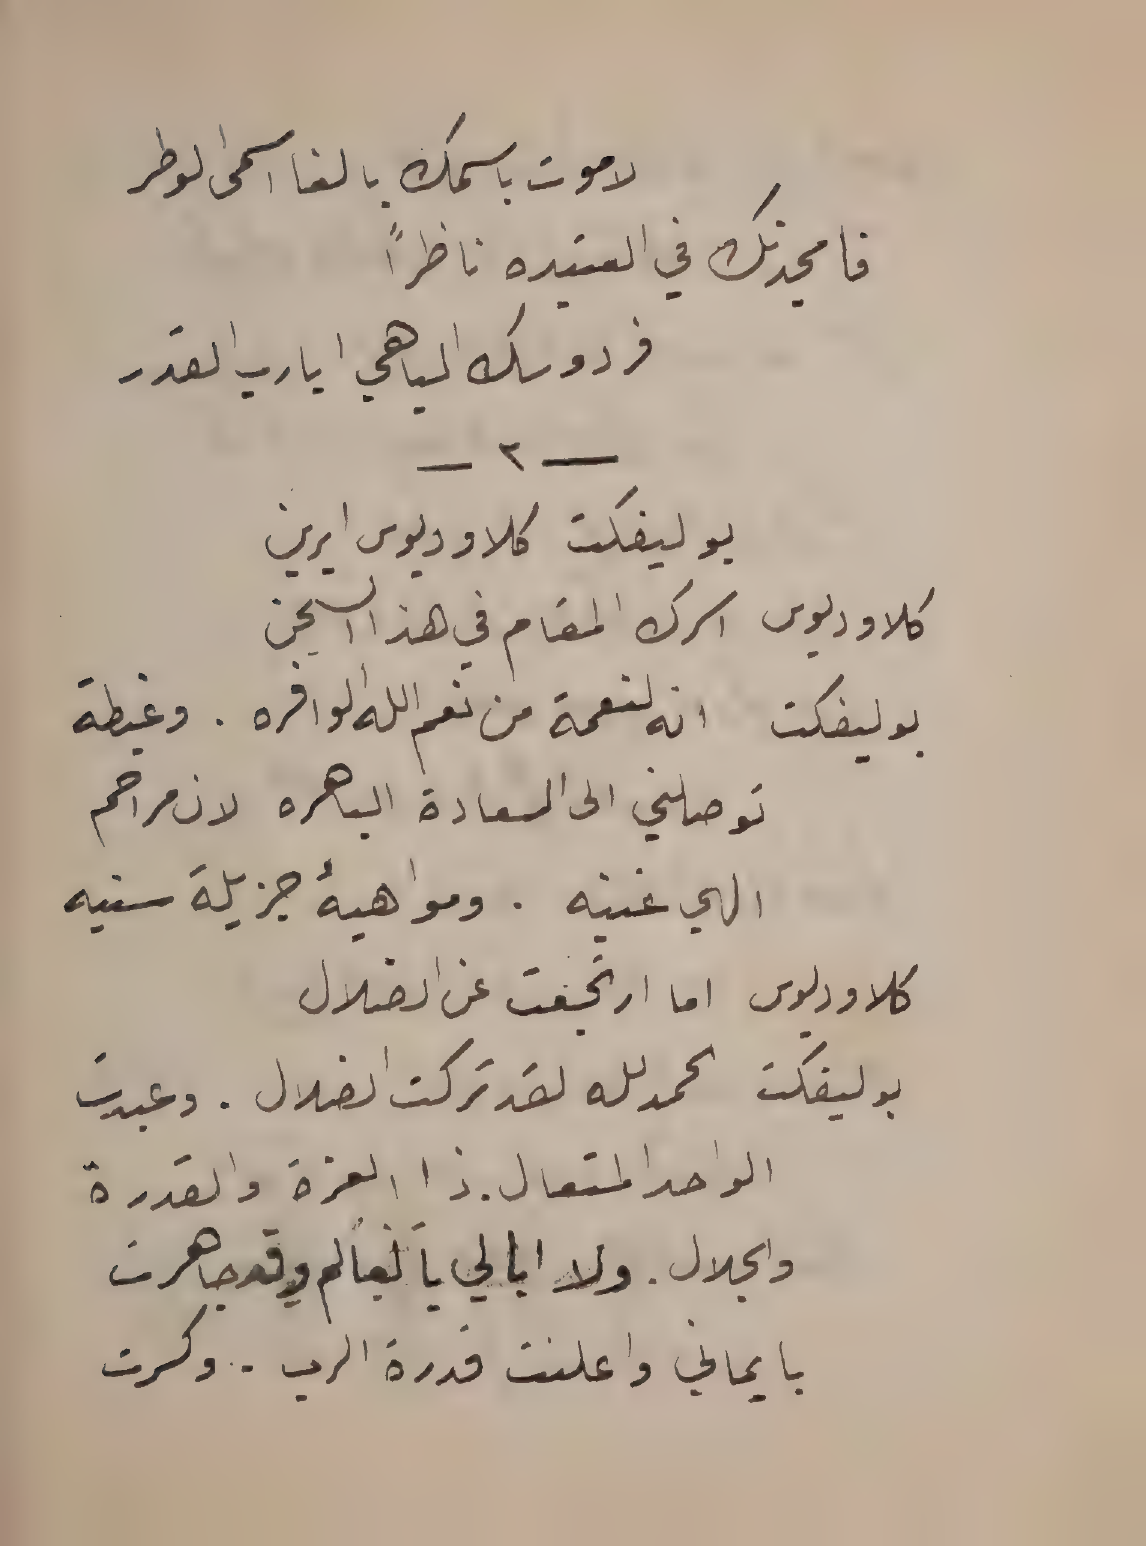 لاموت باسمك بالغا اسمى الوطر
فامجدنك في العتيده ناظرًا
فردوسك الباهي ايا رب القدر
— ٢ —
بوليفكت كلاوديوس ايرين
كلاوديوس اسرك المقام في هذا السجن
بوليفكت انه لنعمة من نعم الله الوافره . وغبطة
توصلني الى السعادة الباهره لان مراحم
الهي غنيه . ومواهبهُ جزيلة سنيه
كلاوديوس اما ارتجعت عن الضلال
بوليفكت الحمد لله لقد تركت الضلال . وعبدت
الواحد المتعال . ذا العزة والقدرة
والجلال . ولا ابالي بالعالم وقد جاهرت
بايماني واعلنت قدرة الرب .. وكسرت